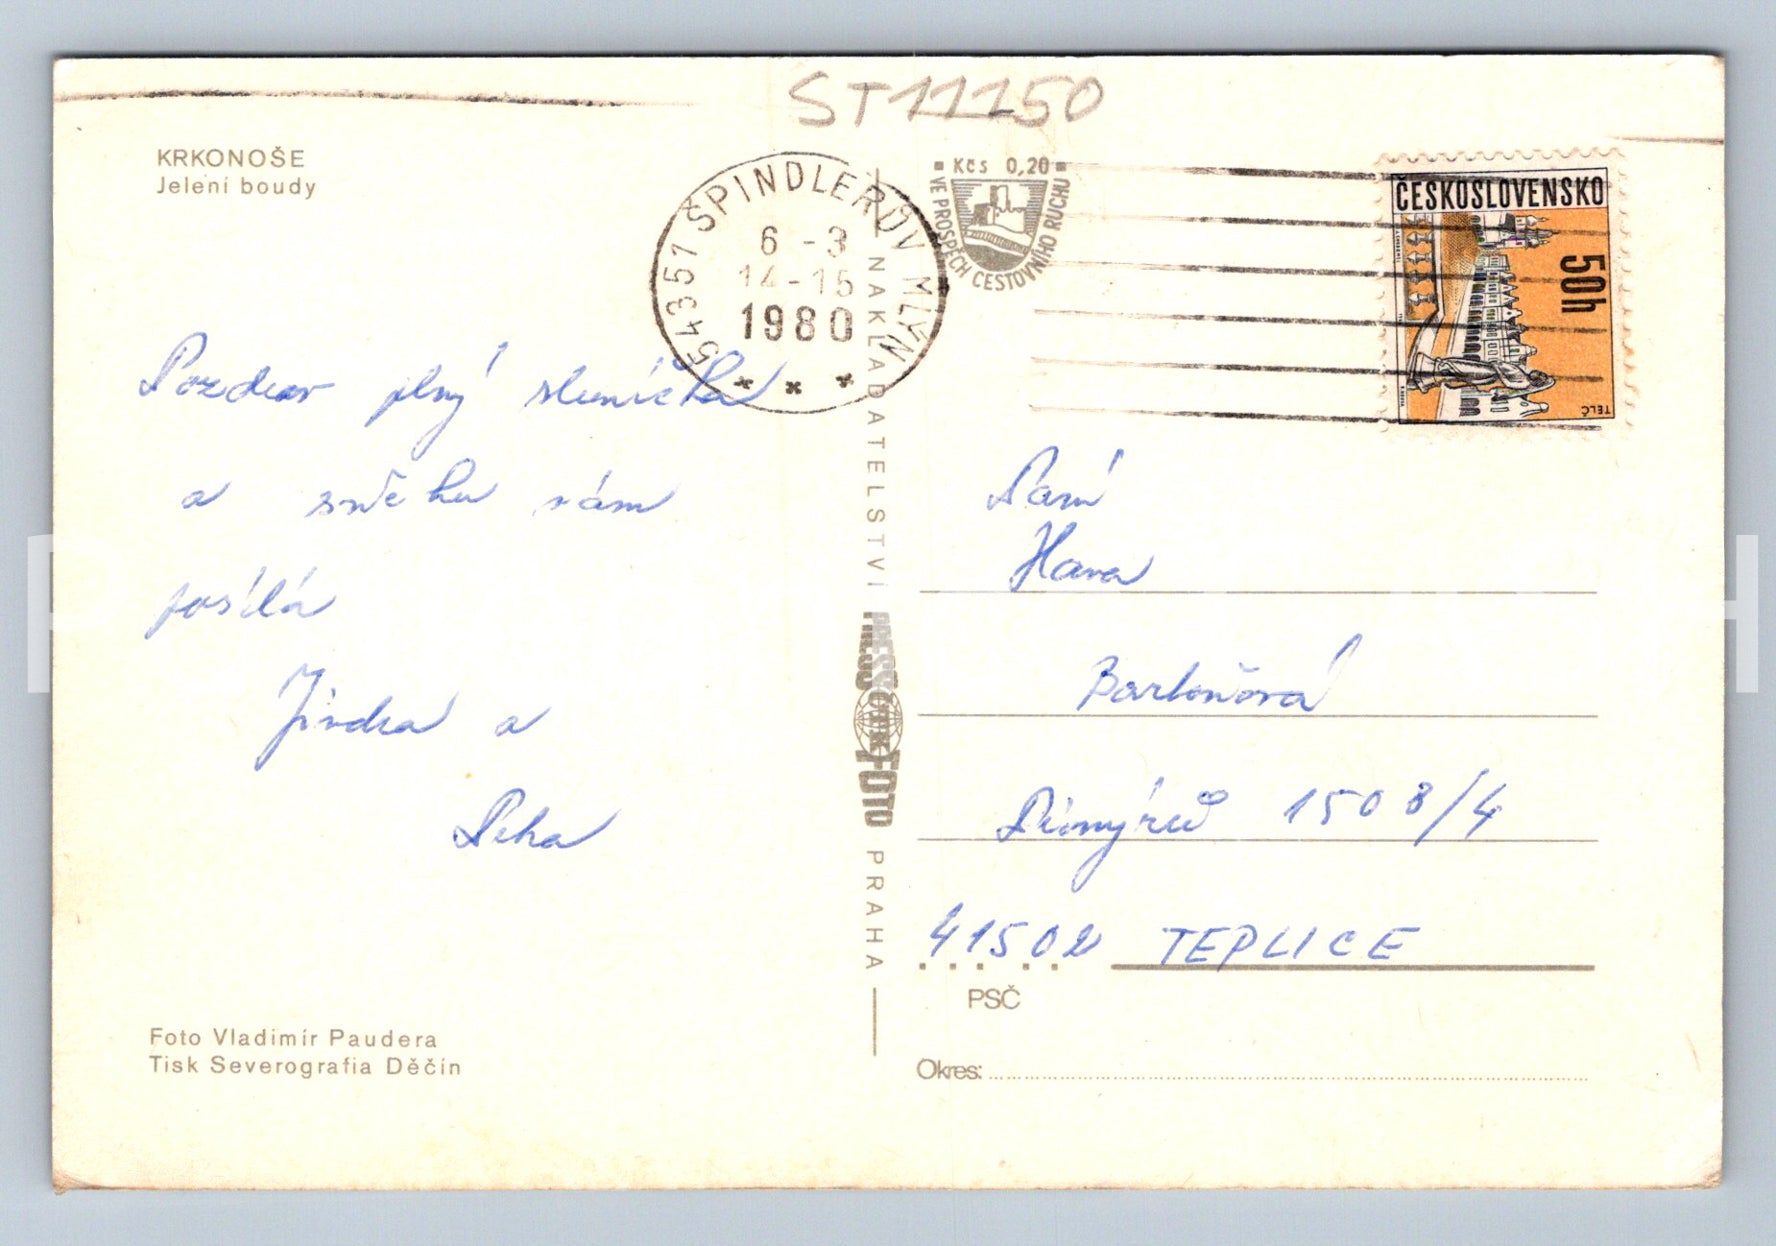 ST11150
KRKONOŠE
Jelení boudy
54351 ŠPINDLERŮV MLÝN
6 -3
14-15
1980
Kčs 0,20
VE PROSPĚCH CESTOVNÍHO RUCHU
ČESKOSLOVENSKO
50h
TELČ
Pozdrav plný sluníčka
a sněhu vám
posílá
Jindra a
NAKLADATELSTVÍ PRESSFOTO PRAHA
Paní
Hana
Bartoňová
1508/4
41502 TEPLICE
PSČ
Okres:
Foto Vladimír Paudera
Tisk Severografia Děčín